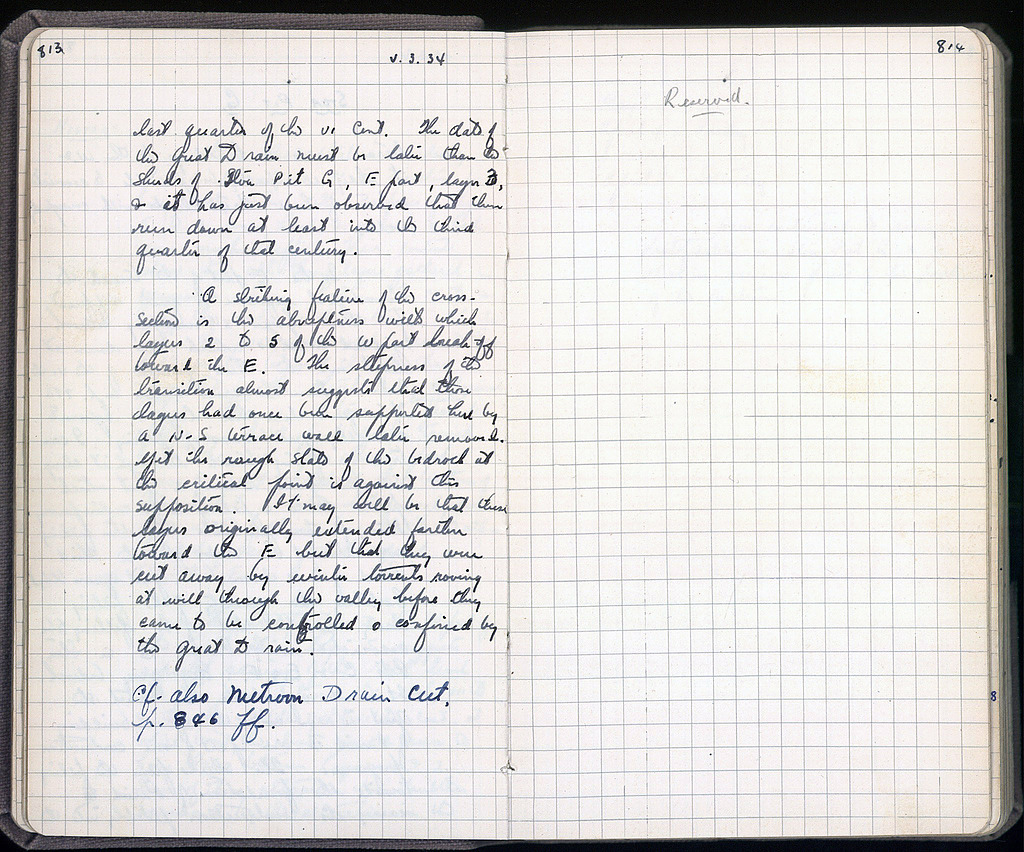 813
V. 3. 34
last quarter of the VI Cent. The date of
the Great Drain must be later than the
sherds of Pit G, E part, layer 3,
& it has just been observed that these
run down at least into the third
quarter of that century.
A striking feature of the cross-
section is the abruptness with which
layers 2 to 5 of the W part break off
toward the E. The steepness of the
transition almost suggests that those
layers had once been supported here by
a N-S terrace wall later removed.
Yet the rough state of the bedrock at
the critical point is against this
supposition. It may well be that these
layers originally extended farther
toward the E but that they were
cut away by winter torrents roving
at will through the valley before they
came to be controlled & confined by
the Great Drain.
Cf. also Metroon Drain Cut,
p. 846 ff.
814
Reserved.
8